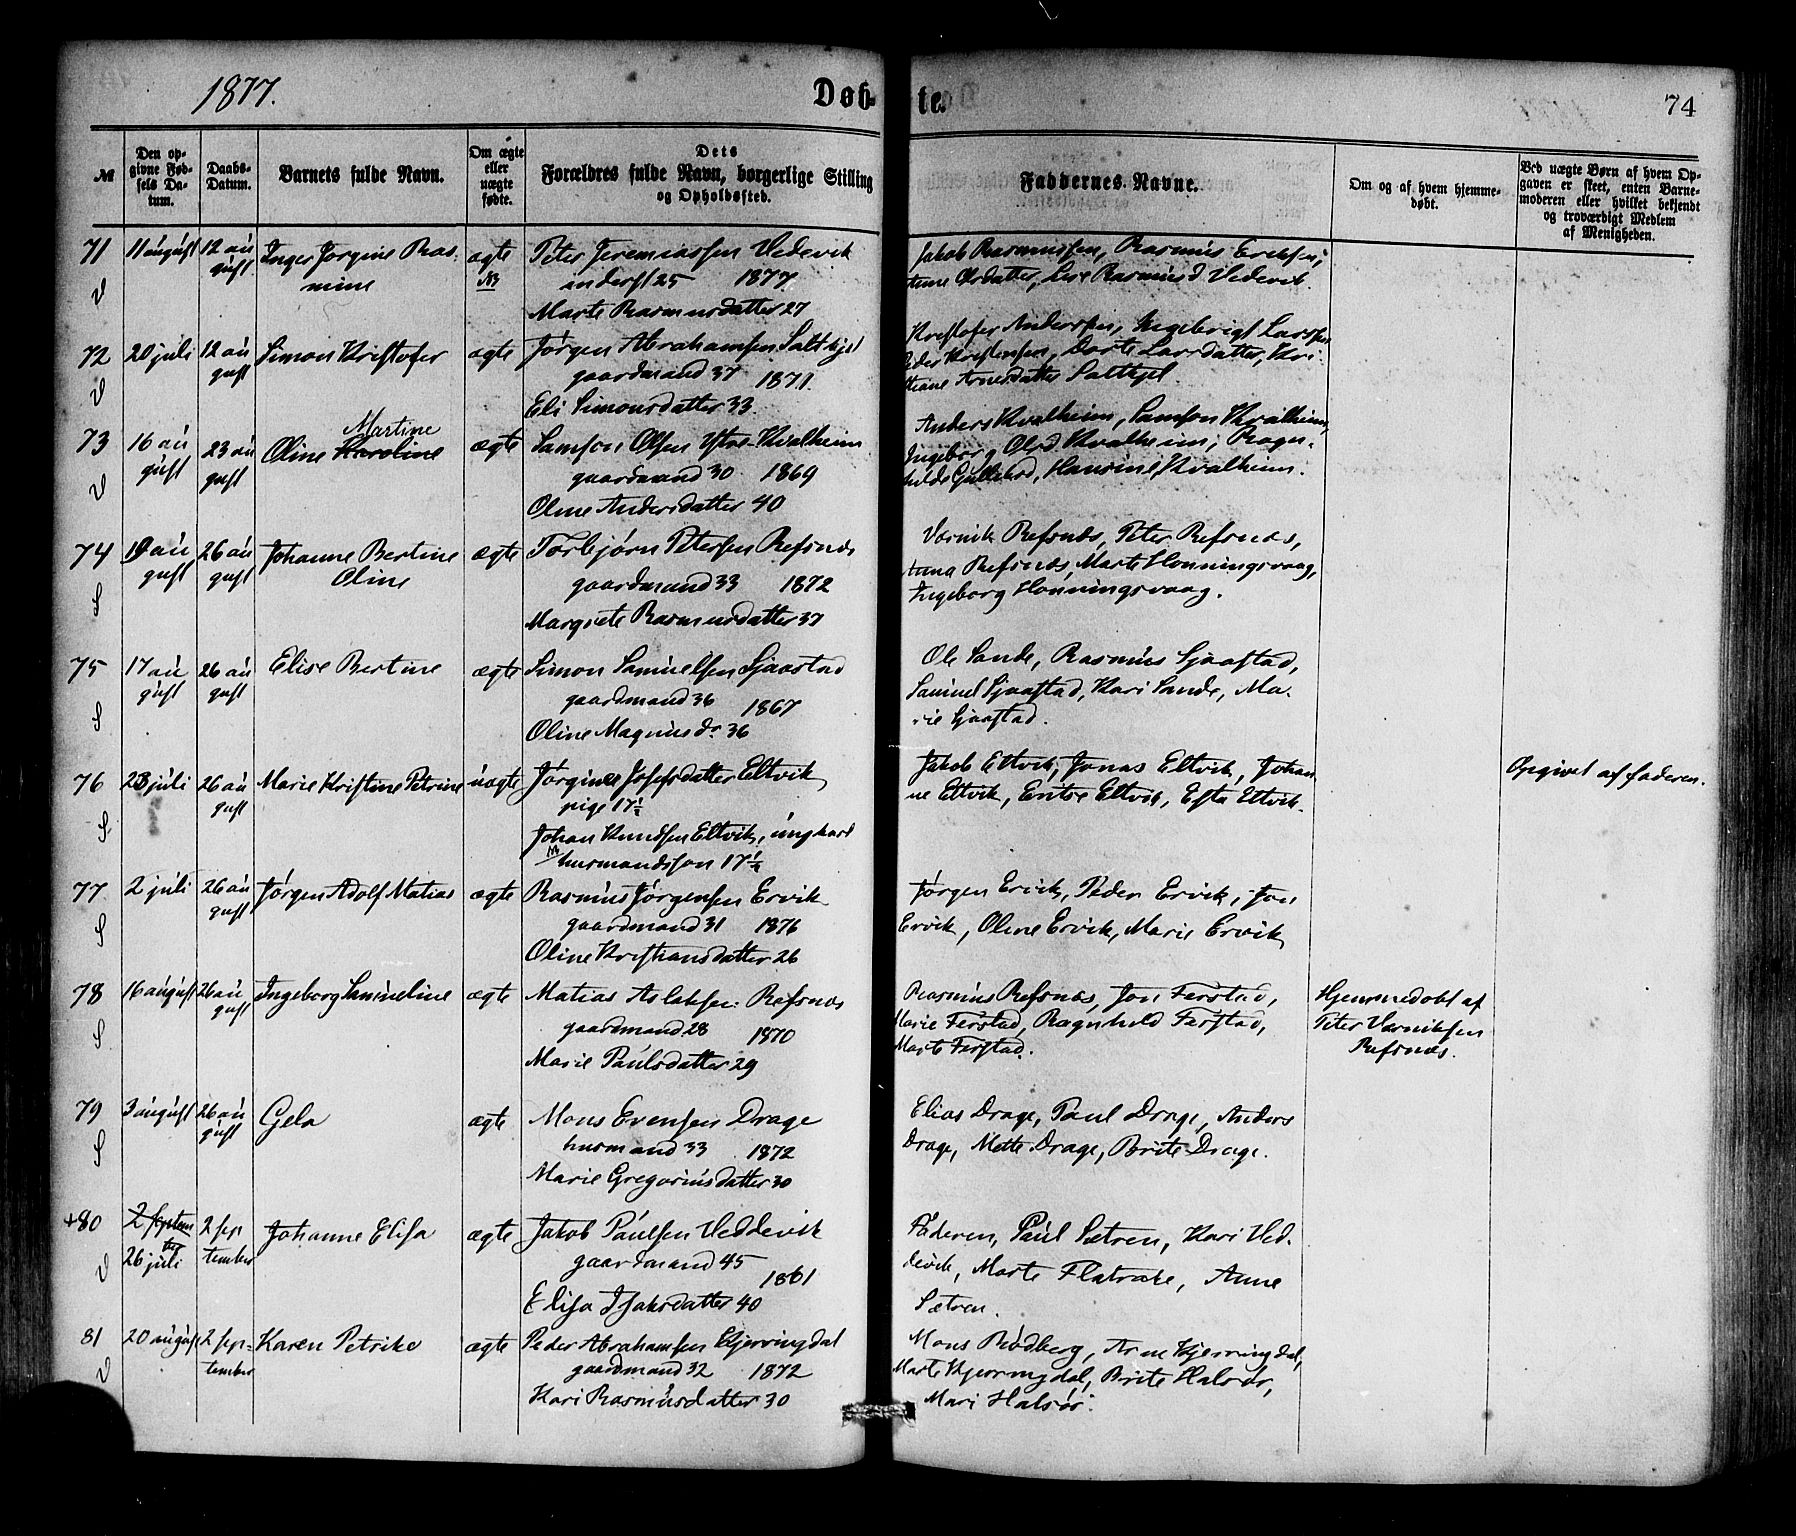 1877.
Døb-
te.
74
№
Den op-
givne Fød-
sels Da-
tum.
Daabs-
Datum.
Barnets fulde Navn.
Om ægte
eller
uægte
fødte.
Dets
Forældres fulde Navn, borgerlige Stilling
og Opholdssted.
Faddernes Navne.
Om og af hvem hjemme-
døbt.
Ved uægte Børn af hvem Op-
gaven er skeet, enten Barne-
moderen eller hvilket bekjendt
og troværdigt Medlem
af Menigheden.
71
V
11 august
12 au
gust
Inger Jørgine Ras
mine
ægte
Peter Jeremiassen Vedevik
25 1877
Marte Rasmusdatter 27
Jakob Rasmussen, Rasmus Eriksen,
Olsdatter, Lise Rasmusd Vedevik.
72
V
20 juli
12 au
gust
Simon Kristofer
ægte
Jørgen Abrahamsen Saltkjel
gaardmand 37 1871
Eli Simonsdatter 33
Kristofer Anderssen, Ingebrigt Larssen
Peder Kristensen, Dorte Larsdatter, Kri
stiane Arnesdatter Saltkjel.
73
V
16 au
gust
23 au
gust
Martine
Oline Karoline
ægte
Samson Olsen Ytre-Kvalheim
gaardmand 30 1869
Oline Andersdatter 40
Anders Kvalheim, Samson Kvalheim,
Ingeborg Olsd Kvalheim, Ragn-
hilde Gulleked, Hansine Kvalheim.
74
S
19 au
gust
26 au
gust
Johanne Bertine
Oline
ægte
Torbjørn Petersen Refsnæs
gaardmand 33 1872
Margrete Rasmusdatter 37
Værnik Refsnæs, Peter Refsnæs,
Anna Refsnæs, Marte Honningsvaag,
Ingeborg Honningsvaag.
75
S
17 au
gust
26 au
gust
Elise Bertine
ægte
Simon Samuelsen Sjaastad
gaardmand 36 1867
Oline Magnusdr 36
Ole Sande, Rasmus Sjaastad,
Samuel Sjaastad, Kari Sande, Ma-
rie Sjaastad.
76
S
23 juli
26 au
gust
Marie Kristine Petrine
uægte
Jørgine Josefsdatter Eltvik
pige 17½
Johan Knudsen Eltvik, ungkarl
husmandssøn 17½
Jakob Eltvik, Jonas Eltvik, Johan
ne Eltvik, Entse Eltvik, Esta Eltvik.
Opgivet af faderen.
77
S
2 juli
26 au
gust
Jørgen Adolf Matias
ægte
Rasmus Jørgensen Ervik
gaardmand 31 1876
Oline Kristiansdatter 26
Jørgen Ervik, Peder Ervik, Jon
Ervik, Oline Ervik, Marie Ervik
78
S
16 august
26 au
gust
Ingeborg Samueline
ægte
Matias Aslaksen Refsnæs
gaardmand 28 1870
Marie Paulsdatter 29
Rasmus Refsnæs, Jon Ferstad,
Marie Ferstad, Ragnhild Ferstad,
Marte Ferstad.
Hjemmedøbt af
Peter Værniksen
Refsnæs.
79
S
3 august
26 au
gust
Gela
ægte
Mons Evensen Drage
husmand 33 1872
Marie Gregoriusdatter 30
Elias Drage, Paul Drage, Anders
Drage, Mette Drage, Brite Drage.
+80
V
2 septem
ber
26 juli
2 sep
tember
Johanne Elisa
ægte
Jakob Paulsen Veddevik
gaardmand 45
1861
Elisa Isaksdatter 40
Faderen, Paul Sætren, Kari Ved-
devik, Marte Flatrake, Anne
Sætren.
81
V
20 august
2 sep-
tember
Karen Petrike
ægte
Peder Abrahamsen Kjerringdal
gaardmand 32 1872
Kari Rasmusdatter 30
Mons Rødberg, Arne Kjerringdal,
Marte Kjerringdal, Brite Halsør,
Mari Halsør.